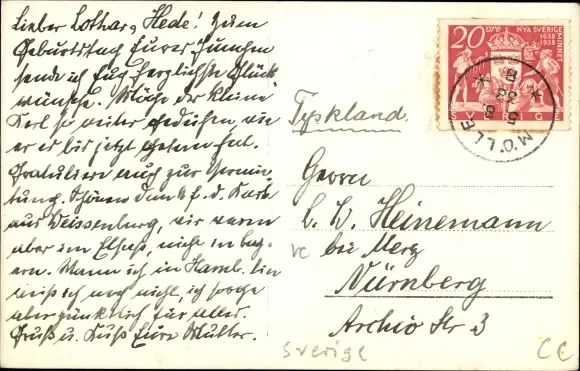 Lieber Lothar, Hede! Zum
Geburtstag Eures Jungen
sende ich Euch herzlichste Glück
wünsche. Möge der kleine
Kerl so weiter gedeihen, wie
er es bis jetzt getan hat.
Gratuliere auch zur
Schönen Dank f. d. Karte
aus Weissenburg, wir waren
aber im Elsaß, nicht in bay-
ern. Wann ich in Hamb. bin
weiß ich noch nicht, ich sorge
aber pünktlich für alles.
Gruß u. Kuß Eure Mutter.
20 öre
NYA SVERIGE
MINNET
1638
1938
SVERIGE
MÖLLE
Tyskland.
Herrn
Heinemann
bei Merz
Nürnberg
Archiv Str 3
Sverige